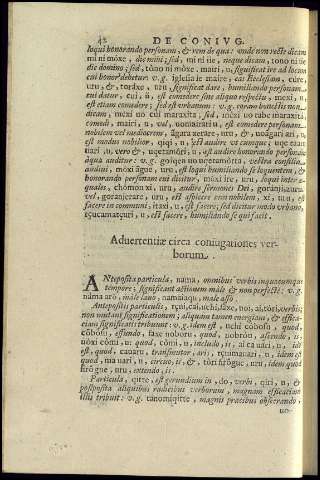 42 DE CONIVG.
loqui honorando personam, & rem de qua: unde non recte dicam
mi ni mòxe, doç mini; sed, mi ni iie, neque dicam, tono ni iie
die domino; sed, tono ni mòxe. mairi, u, significat ire ad locum
cui honor debetur: v.g. iglesia ie maire, eat Ecclesiam, cure,
uru, & toraxo, uru significat dare, humiliando personam
cui datur, cui, ù, est comedere sine aliquo respectu, mexi, u,
est etiam comedere; sed est verbatum: v.g. coram honestis non
dicam, mexi uo cui maraxita, sed, mexi uo tabe maraxita,
comedi, mairi, u, vel est comedere personam
nobilem vel mediocrem, àgara uexare, uru, & uoàgari ari, u,
est modus nobilior, qiqi, u, est audire vt cumque; uqe
uari, u, vero & uqetamòri, u, est audire honorando personam
à qua auditur: v.g. goiqen uo uqetamòtta, vestra consilia
audiui, mòxi àgue, uru, est loqui humiliando se loquentem, &
honorando personam cui dicitur, mòxi ire, uru, loqui inter e-
quales, chòmon xi, uru, audire sermones Dei, goranji,
vel, goranjerare, uru, est aspicere rem nobilem, xi, uru, est
facere in communi, itaxi, u, est facere; sed dicitur modo vrbano,
tçucamatçuri, u, est facere, humiliando se qui facit.
Aduertentiæ circa coniugationes ver-
borum.
ANteposita particula, nama, omnibus verbis in quacumque
tempore; significant actionem malè & non perfectè: v.g.
nàma arò, malè lauo, namaiaqu, malè asso
Antepositis particulis, tçui, cai, uchi, faxe, voi, ai, tòri, verbis;
non mutant significationem; aliquam tamen energiam, & effica-
ciam significatis tribuunt: v.g. idem est, uchi còbosu, quod,
còbosu, effundo, faxe nobòre, quod, nobòru, ascendo, is,
uòxi còmi, u: quod, còmi, u, includo, is, ai ca uari, u, idẽ
est, quod, cauaru, transmutor, aris, tçumauari, u, idem est
quod, ma uari, u, circuo, is, & tòri firògue, uru, idem quod
firògue, uru, extendo, is.
Particula, qitte, est gerundium in, do, verbi, qiri, u, &
postposita aliquibus radicibus verborum, magnam efficaciam
illis tribuit: v.g. tanomiqitte, magnis præcibus obsecrando,
uo-